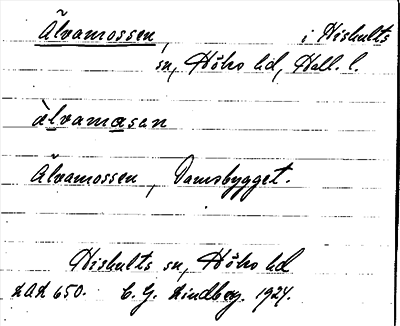 Älvamossen, i Hishults
sn, Höks hd, Hall. l.
àlvamɑsən
Älvamossen, Damsbygget.
Hishults sn, Höks hd
LAL 650. C. G. Lindberg. 1924.